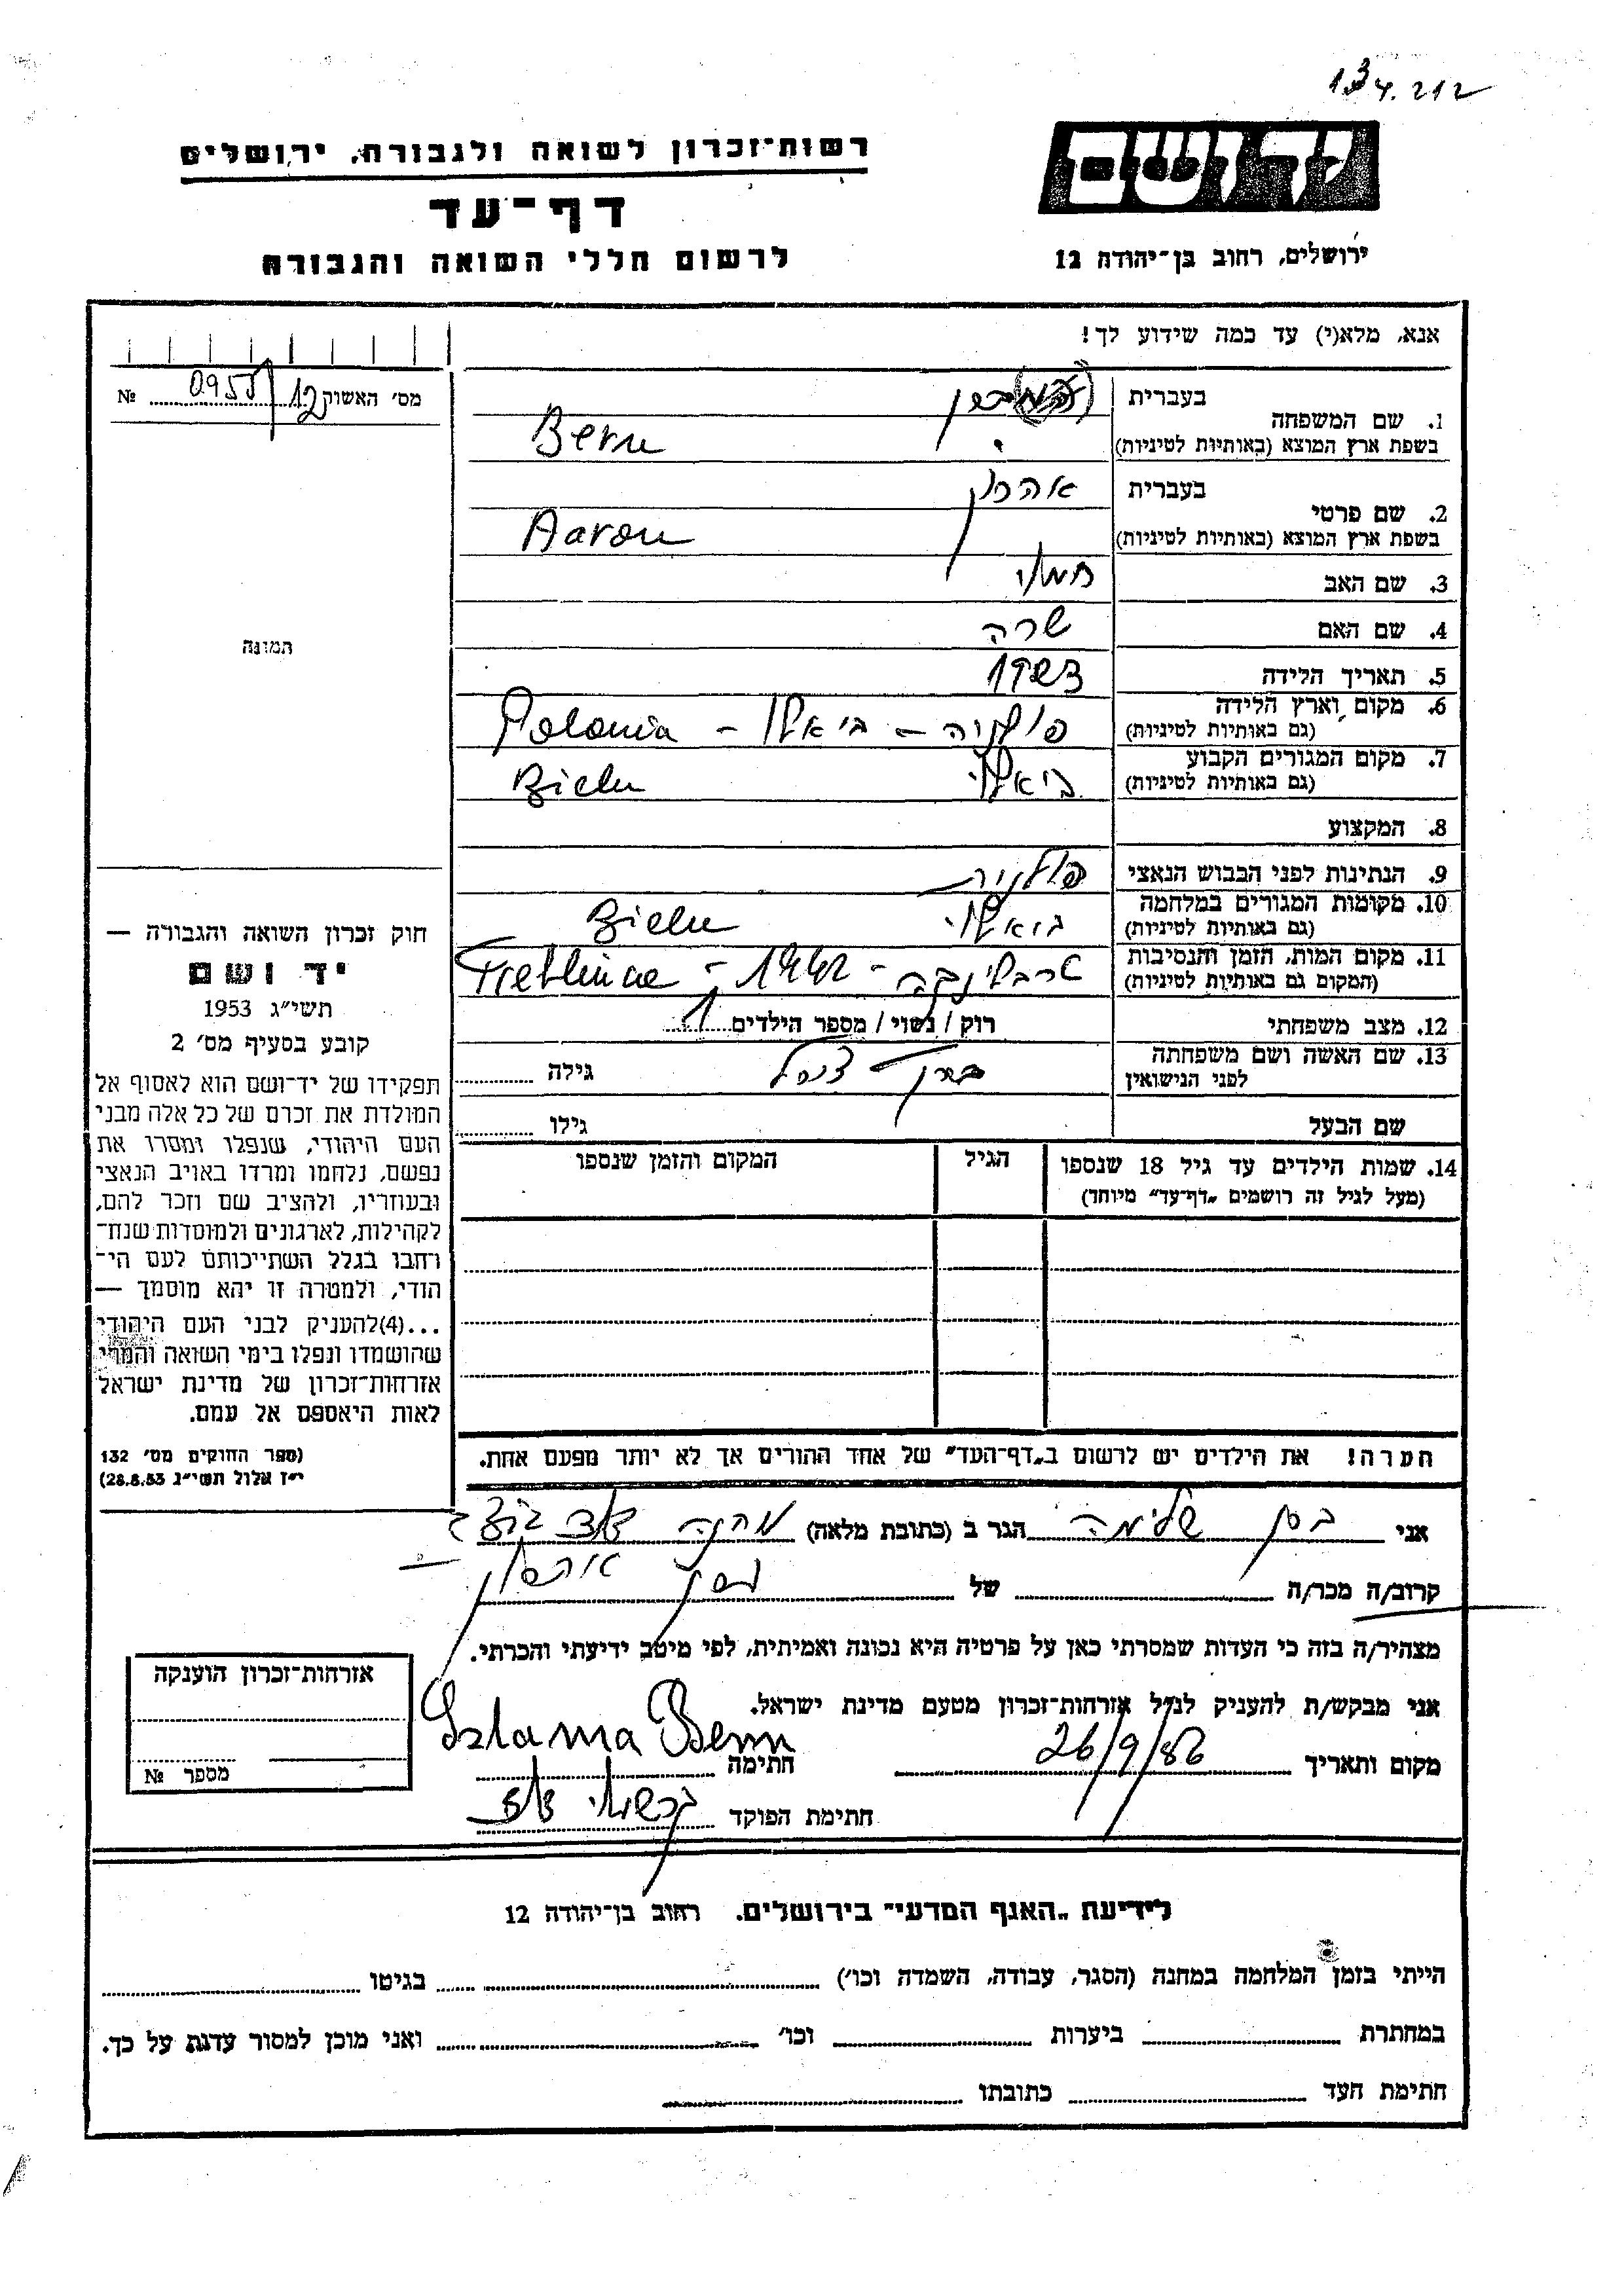 134.212
יד ושם
רשות־זכרון לשואה ולגבורה, ירושלים
דף־עד
לרשום חללי השואה והגבורה
ירושלים, רחוב בן־יהודה 12
אנא, מלא(י) עד כמה שידוע לך!
מס׳ האשוק 0955/12 №
תמונה
1. שם המשפחה
בעברית
בשפת ארץ המוצא (באותיות לטיניות) Bern
2. שם פרטי
בעברית אהרון
בשפת ארץ המוצא (באותיות לטיניות) Aaron
3. שם האב
4. שם האם שרה
5. תאריך הלידה
6. מקום וארץ הלידה פולניה – ביאלו – Polonia
(גם באותיות לטיניות)
7. מקום המגורים הקבוע ביאלו Bielu
(גם באותיות לטיניות)
8. המקצוע
9. הנתינות לפני הכבוש הנאצי פולנית
10. מקומות המגורים במלחמה ביאלו Bielu
(גם באותיות לטיניות)
11. מקום המות, הזמן והנסיבות טרבלינקה – 1942 – Treblince
(המקום גם באותיות לטיניות)
12. מצב משפחתי רוק / נשוי / מספר הילדים 1
13. שם האשה ושם משפחתה גילה
לפני הנישואין
שם הבעל גילו
14. שמות הילדים עד גיל 18 שנספו הגיל המקום והזמן שנספו
(מעל לגיל זה רושמים „דף־עד” מיוחד)
הערה! את הילדים יש לרשום ב„דף־העד” של אחד ההורים אך לא יותר מפעם אחת.
חוק זכרון השואה והגבורה —
יד ושם
תשי״ג 1953
קובע בסעיף מס׳ 2
תפקידו של יד־ושם הוא לאסוף אל
המולדת את זכרם של כל אלה מבני
העם היהודי, שנפלו ומסרו את
נפשם, נלחמו ומרדו באויב הנאצי
ובעוזריו, ולהציב שם וזכר להם,
לקהילות, לארגונים ולמוסדות שנח־
רחבו בגלל השתייכותם לעם הי־
הודי, ולמטרה זו יהא מוסמך —
...(4) להעניק לבני העם היהודי
שהושמדו ונפלו בימי השואה והמרי
אזרחות־זכרון של מדינת ישראל
לאות היאספם אל עמם.
(ספר החוקים מס׳ 132
י״ז אלול תשי״ג 28.8.53)
אני ברן שלימה הגר ב (כתובת מלאה)
קרוב/ה מכר/ה של ברן אהרון
מצהיר/ה בזה כי העדות שמסרתי כאן על פרטיה היא נכונה ואמיתית, לפי מיטב ידיעתי והכרתי.
אני מבקש/ת להעניק לנ״ל אזרחות־זכרון מטעם מדינת ישראל.
מקום ותאריך 26/9/86 חתימה Szlama Bern
חתימת הפוקד
אזרחות־זכרון הוענקה
מספר №
לידיעת „האגף המדעי” בירושלים. רחוב בן־יהודה 12
הייתי בזמן המלחמה במחנה (הסגר, עבודה, השמדה וכו׳) בגיטו
במחתרת ביערות וכו׳ ואני מוכן למסור עדות על כך.
חתימת העד כתובתו